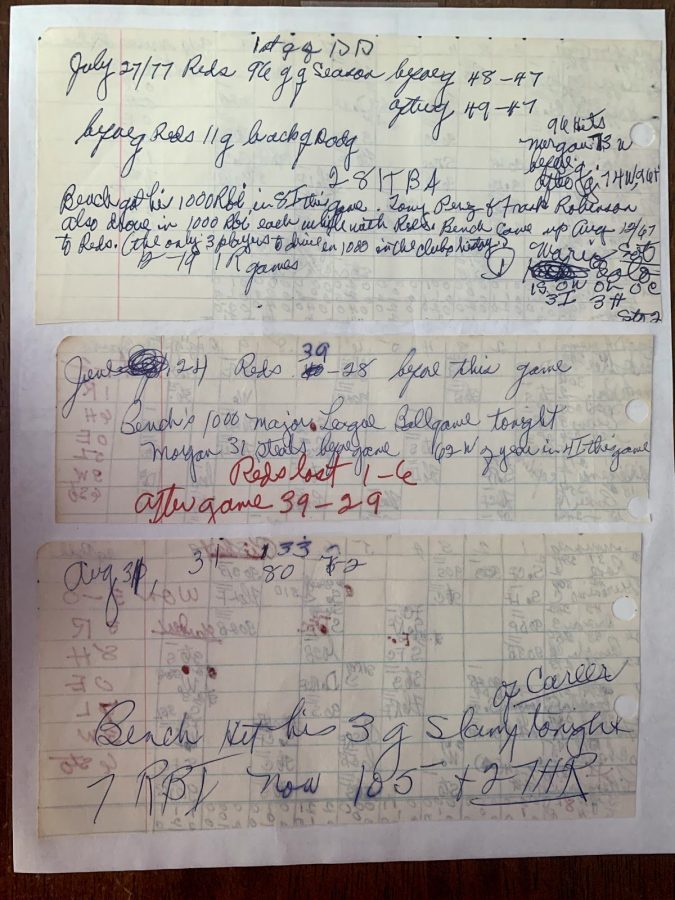 1st g of DD
July 27/77 Reds 96 g of Season before 48-47
after 49-47
before Reds 11 g back of Dodg
96 Hits
Morgan 73 W
before g
after g 74 W, 96 H
28 TBA
Bench got his 1000 Rbi in 8 I this game. Tony Perez & Frank Robinson
also drove in 1000 Rbi each while with Reds. Bench came up Aug 12/67
to Reds. (the only 3 players to drive in 1000 in the clubs history)
12-19 1 R games
Mario Soto
1S on on
3I 3H
Str 2
June 24 Reds 39-28 before this game
Bench's 1000 Major League Ballgame tonight
Morgan 31 steals before game 62 W of year in 4 I this game
Reds lost 1-6
after game 39-29
Aug 31, 31 133
80 52
of Career
Bench Hit his 3 g Slam tonight
7 RBI now 105 + 27 HR